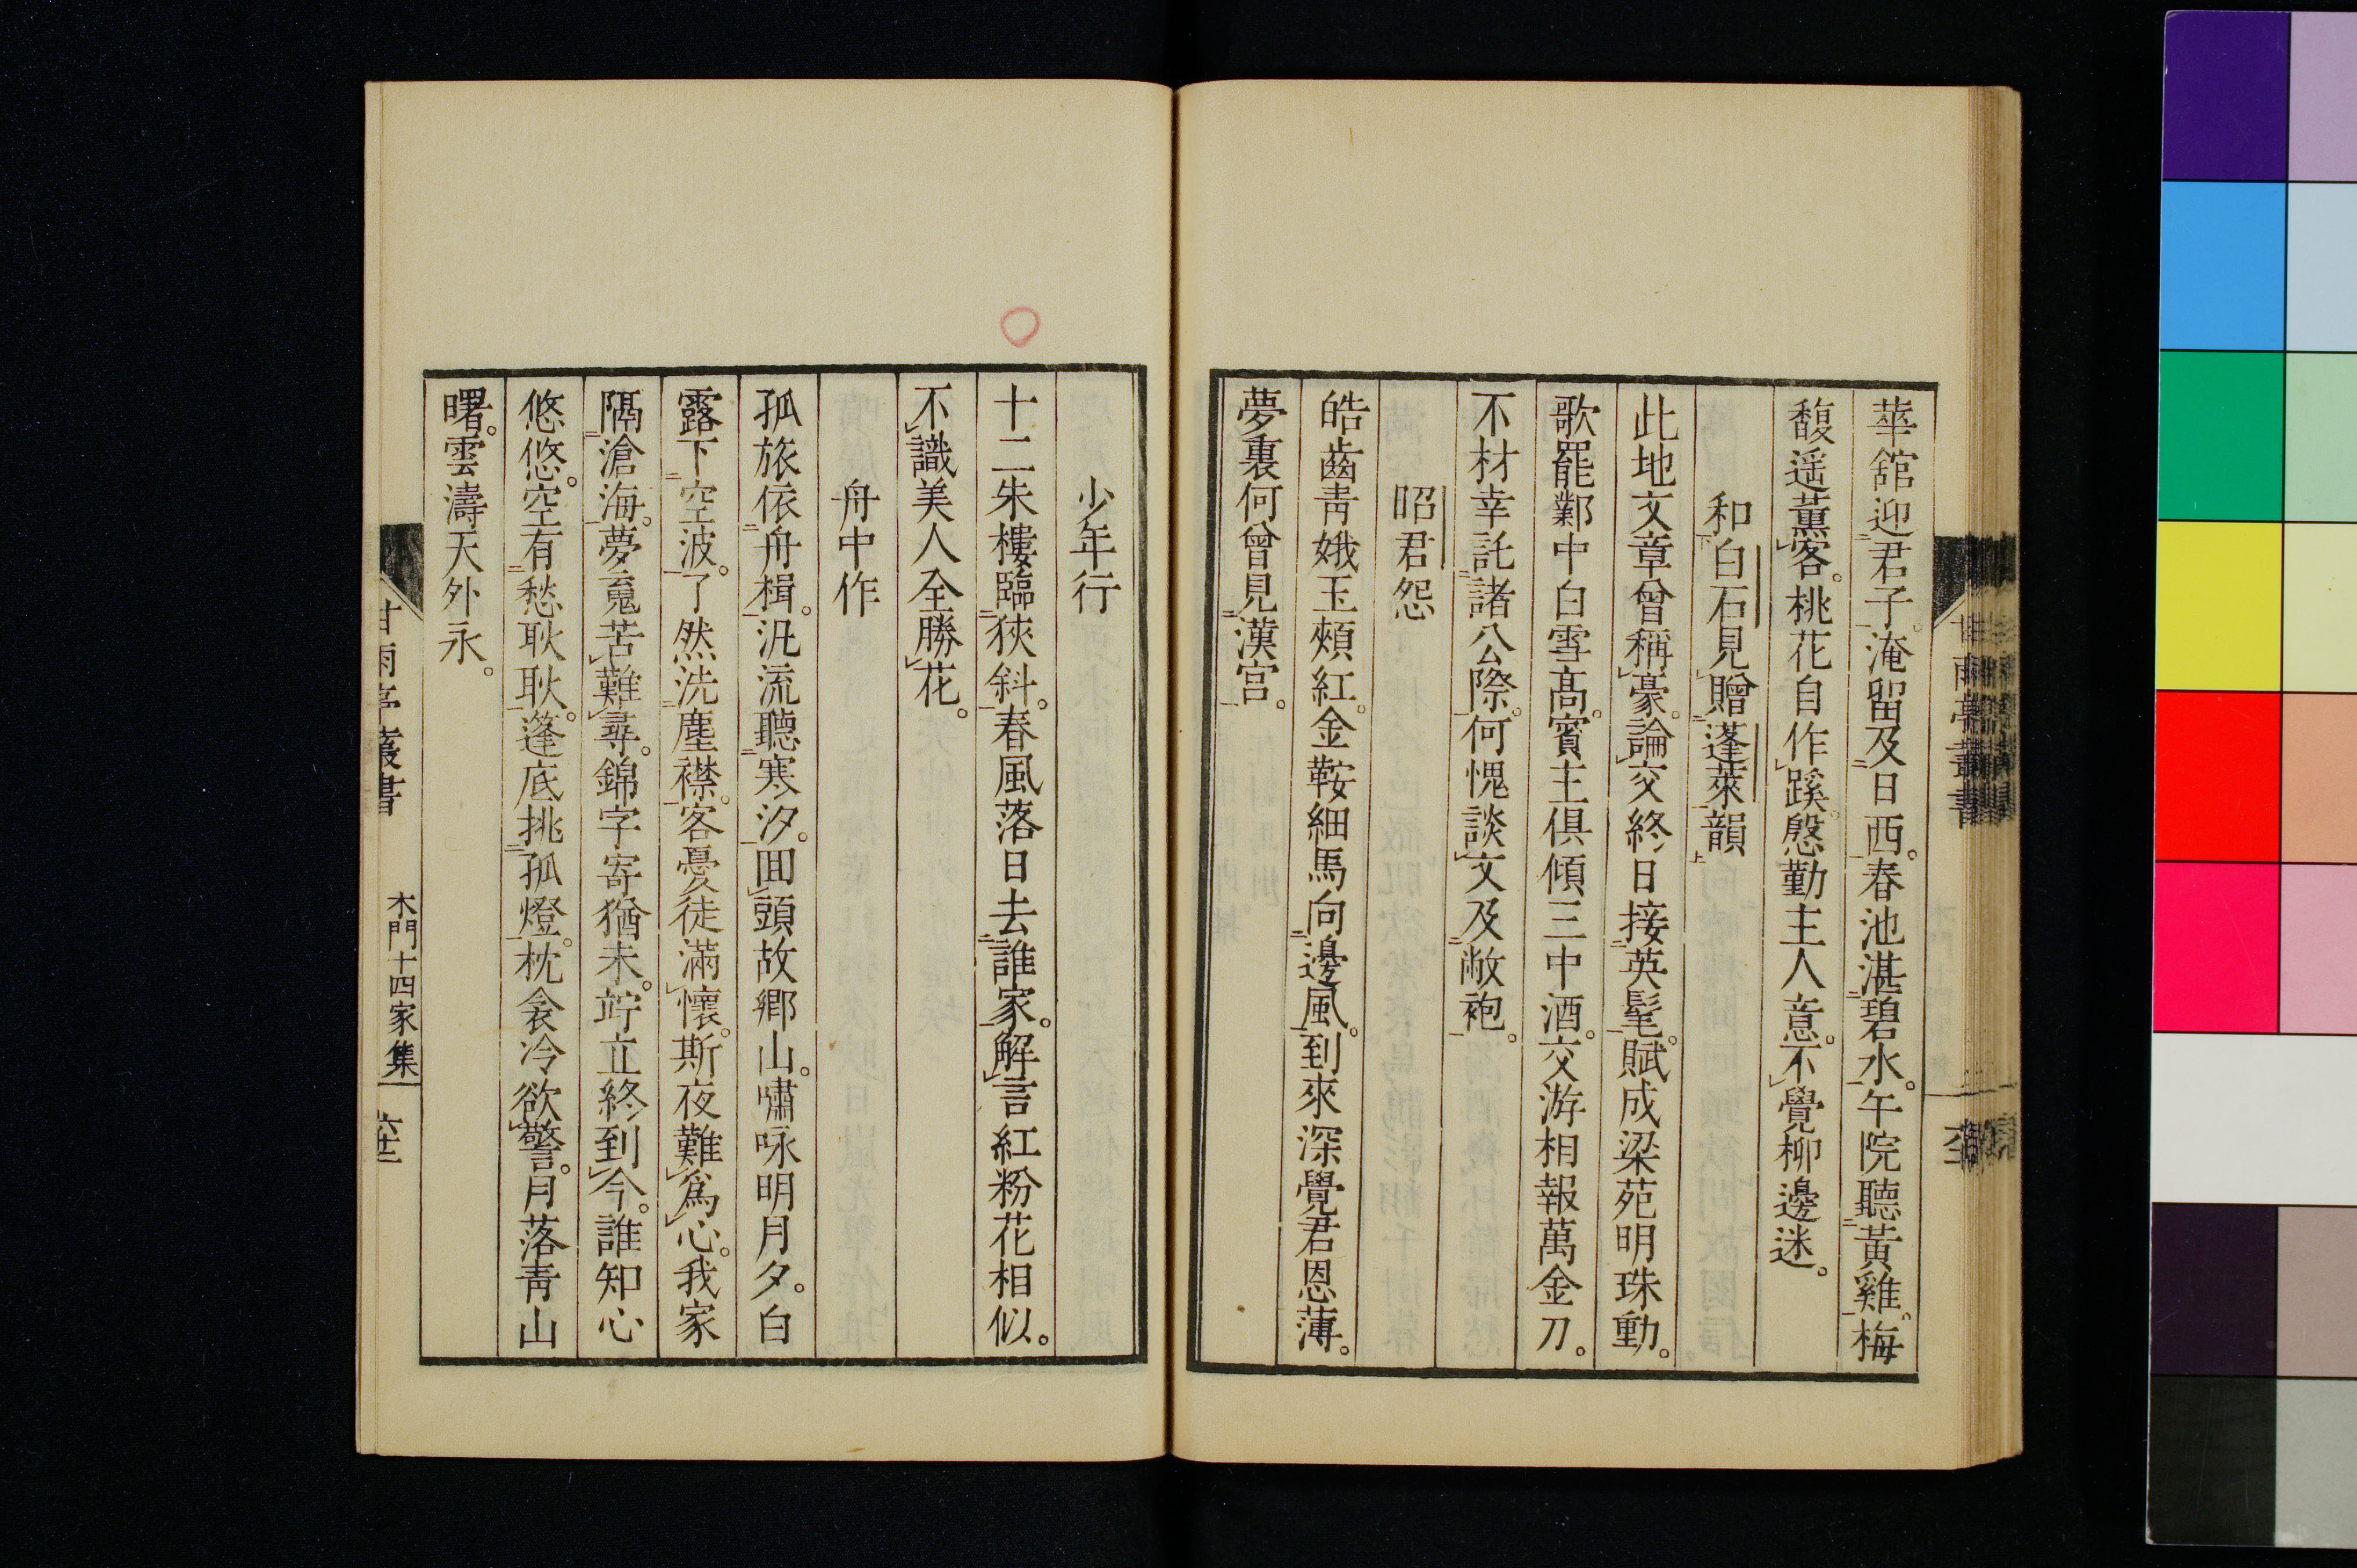 華舘迎君子。淹畱及日西。春池湛碧水。午院聽黃雞。梅
馥遥薫客。桃花自作蹊。慇勤主人意。不覺柳邊迷。
和白石見贈蓬萊韻
此地文章曾稱豪。論交終日接英髦。賦成梁苑明珠動。
歌罷鄴中白雪高。賓主俱傾三中酒。交游相報萬金刀。
不材幸託諸公際。何愧談文及敝袍。
昭君怨
皓齒靑娥玉頰紅。金鞍細馬向邊風。到來深覺君恩薄。
夢裏何曾見漢宮。
少年行
十二朱樓臨狹斜。春風落日去誰家。解言紅粉花相似。
不識美人全勝花。
舟中作
孤旅依舟楫。汎流聽寒汐。回頭故鄕山。嘯咏明月夕。白
露下空波。了然洗塵襟。客憂徒滿懷。斯夜難爲心。我家
隔滄海。夢䰟苦難尋。錦字寄猶未。竚立終到今。誰知心
悠悠。空有愁耿耿。篷底挑孤燈。枕衾冷欲警。月落靑山
曙。雲濤天外永。
甘雨亭叢書
木門十四家集